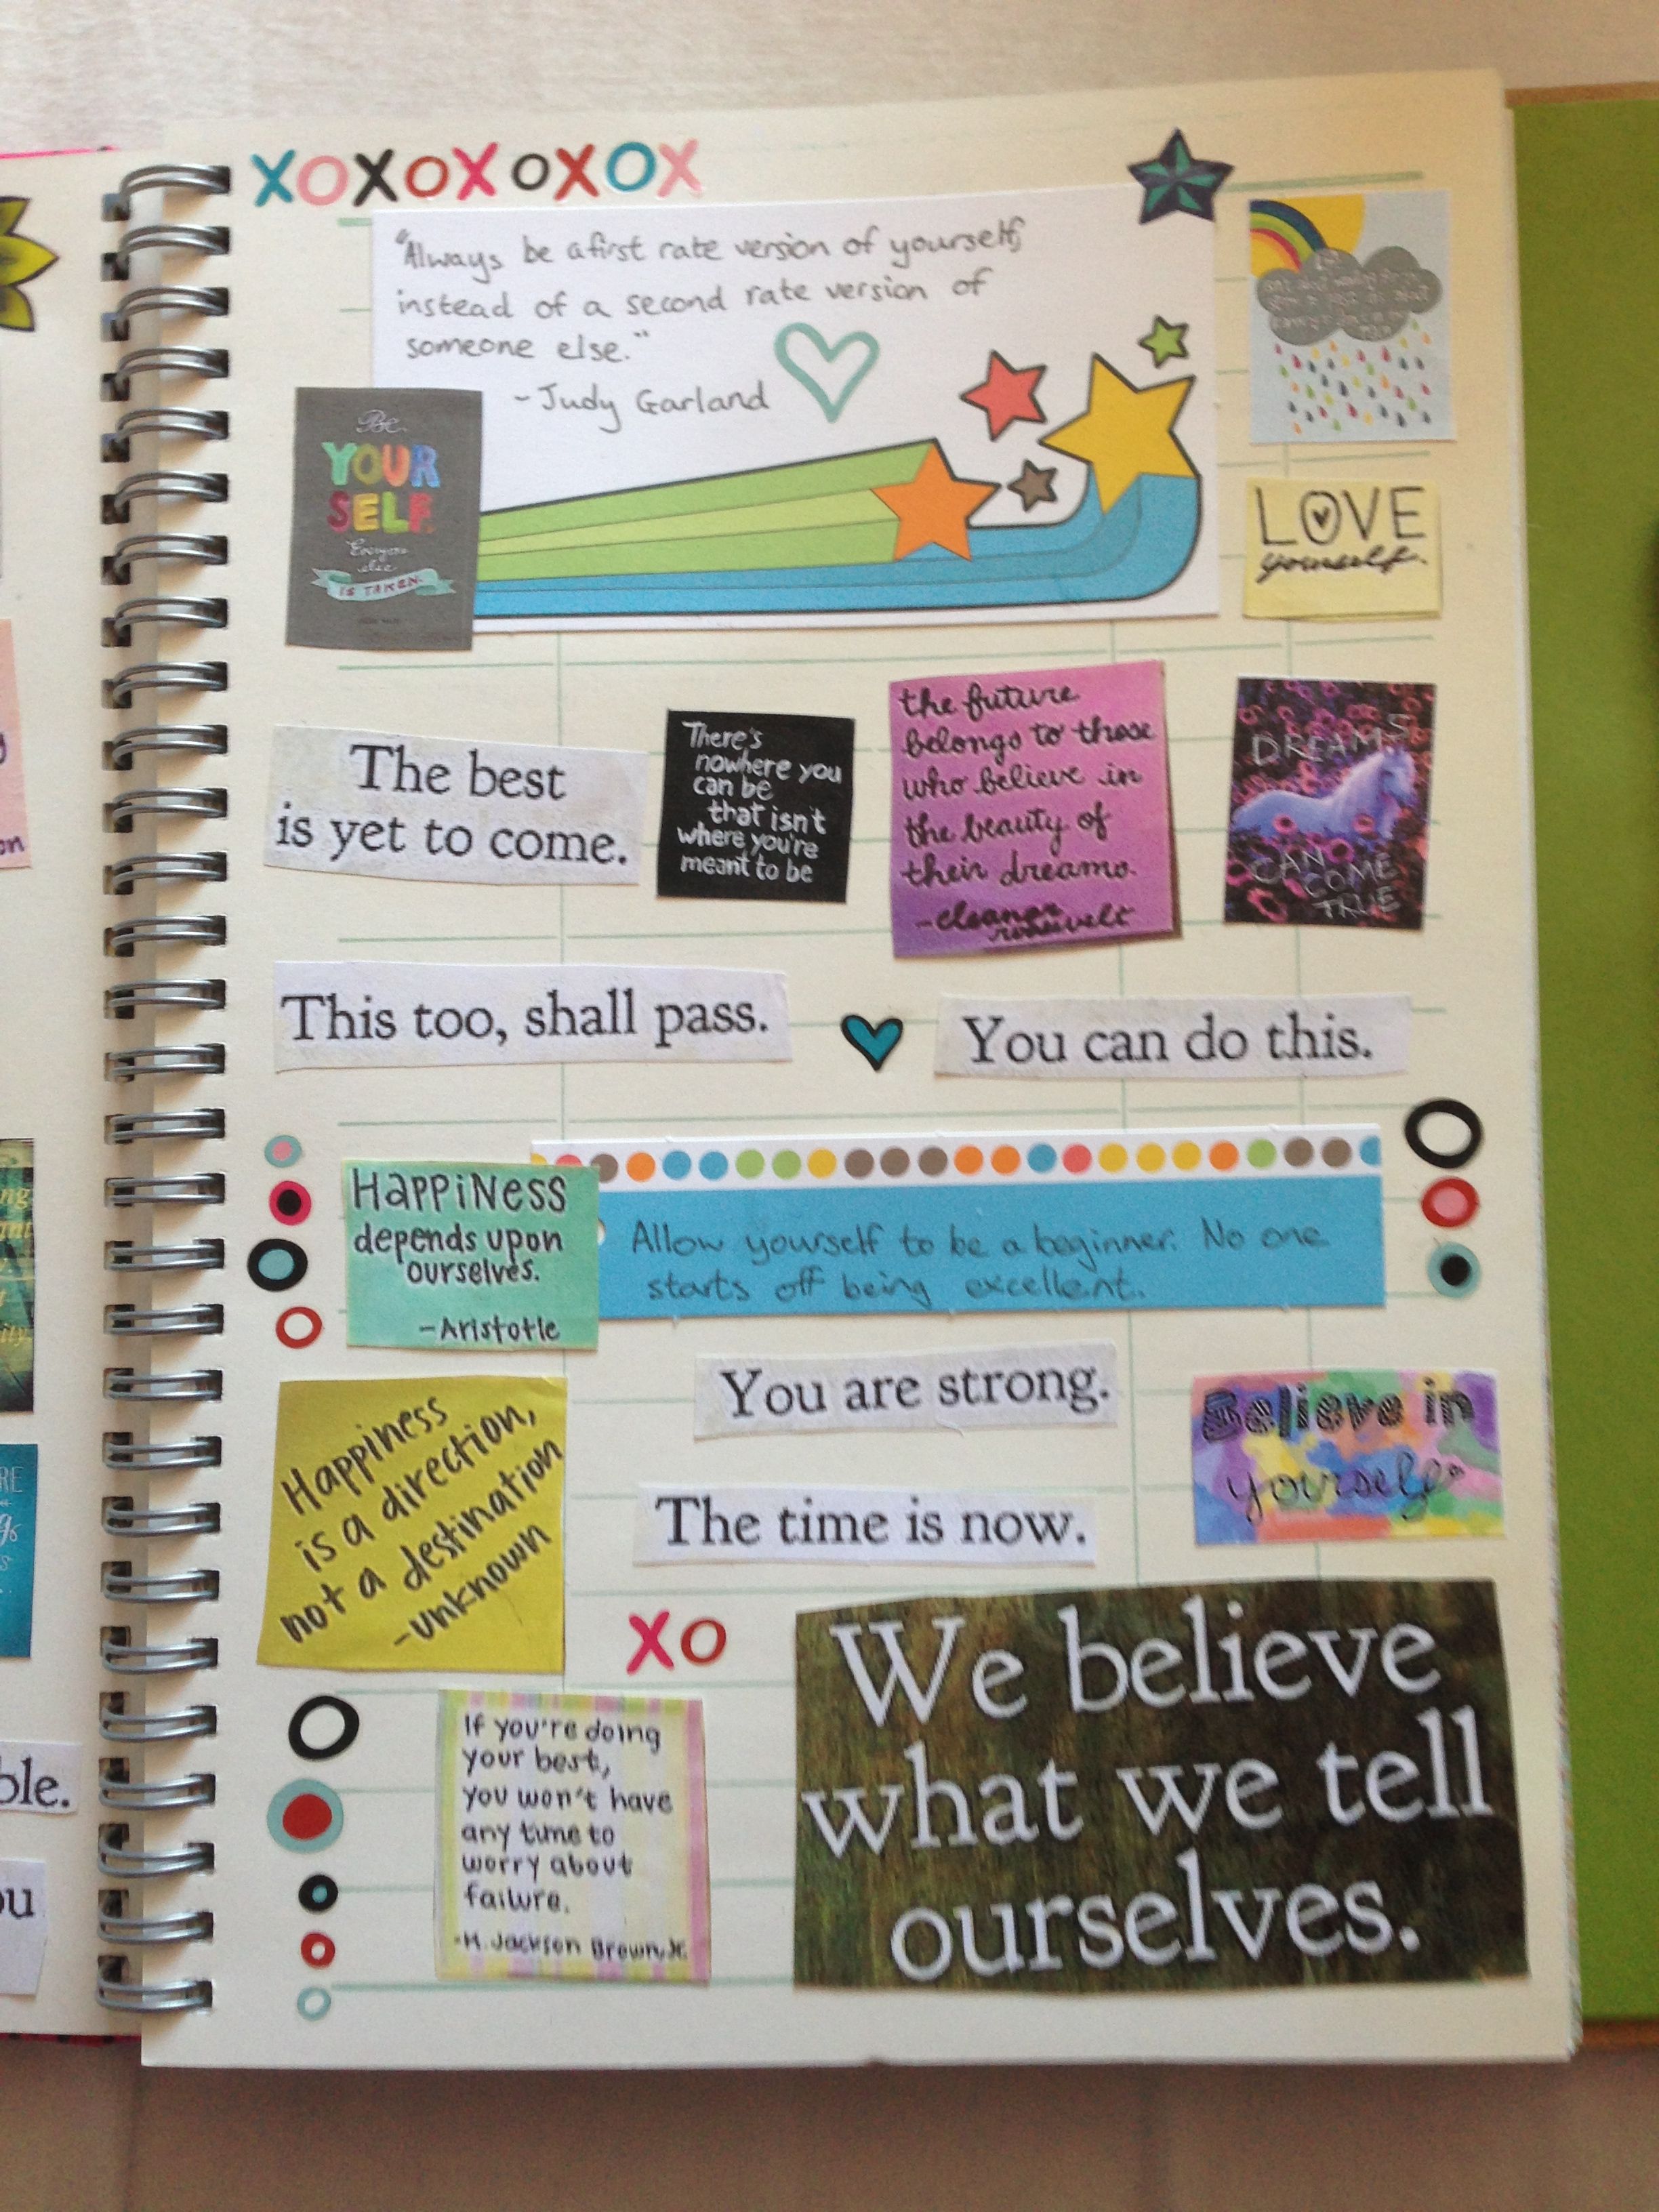 XOXOXOXOX
"Always be a first rate version of yourself,
instead of a second rate version of
someone else."
- Judy Garland
Be
YOUR
SELF
Everyone
else
IS TAKEN.
LOVE
yourself.
The best
is yet to come.
There's
nowhere you
can be
that isn't
where you're
meant to be
the future
belongs to those
who believe in
the beauty of
their dreams.
- eleanor
roosevelt
DREAMS
CAN
COME
TRUE
This too, shall pass.
You can do this.
HAPPINESS
depends upon
ourselves.
- Aristotle
Allow yourself to be a beginner. No one
starts off being excellent.
You are strong.
Believe in
yourself
Happiness
is a direction,
not a destination
- unknown
The time is now.
XO
If you're doing
your best,
you won't have
any time to
worry about
failure.
- H. Jackson Brown, Jr.
We believe
what we tell
ourselves.
ble.
ou